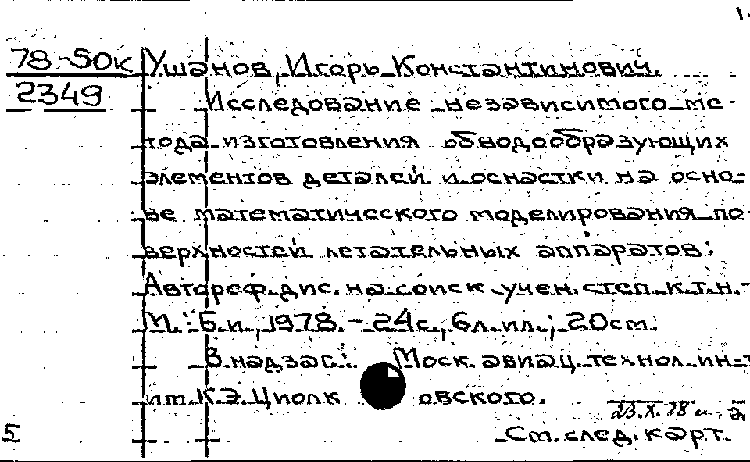 1.
78-50к Ушанов, Игорь Константинович.
2349 Исследование независимого ме-
тода изготовления обводообразующих
элементов деталей и оснастки на осно-
ве математического моделирования по-
верхностей летательных аппаратов:
Автореф. дис. на соиск. учен. степ. к.т.н.-
М.: Б.и., 1978. - 24с., 6л. ил.; 20см.
В надзаг.: Моск. авиац. технол. ин-т
им. К.Э. Циолковского.
23.X.78
5 См. след. карт.